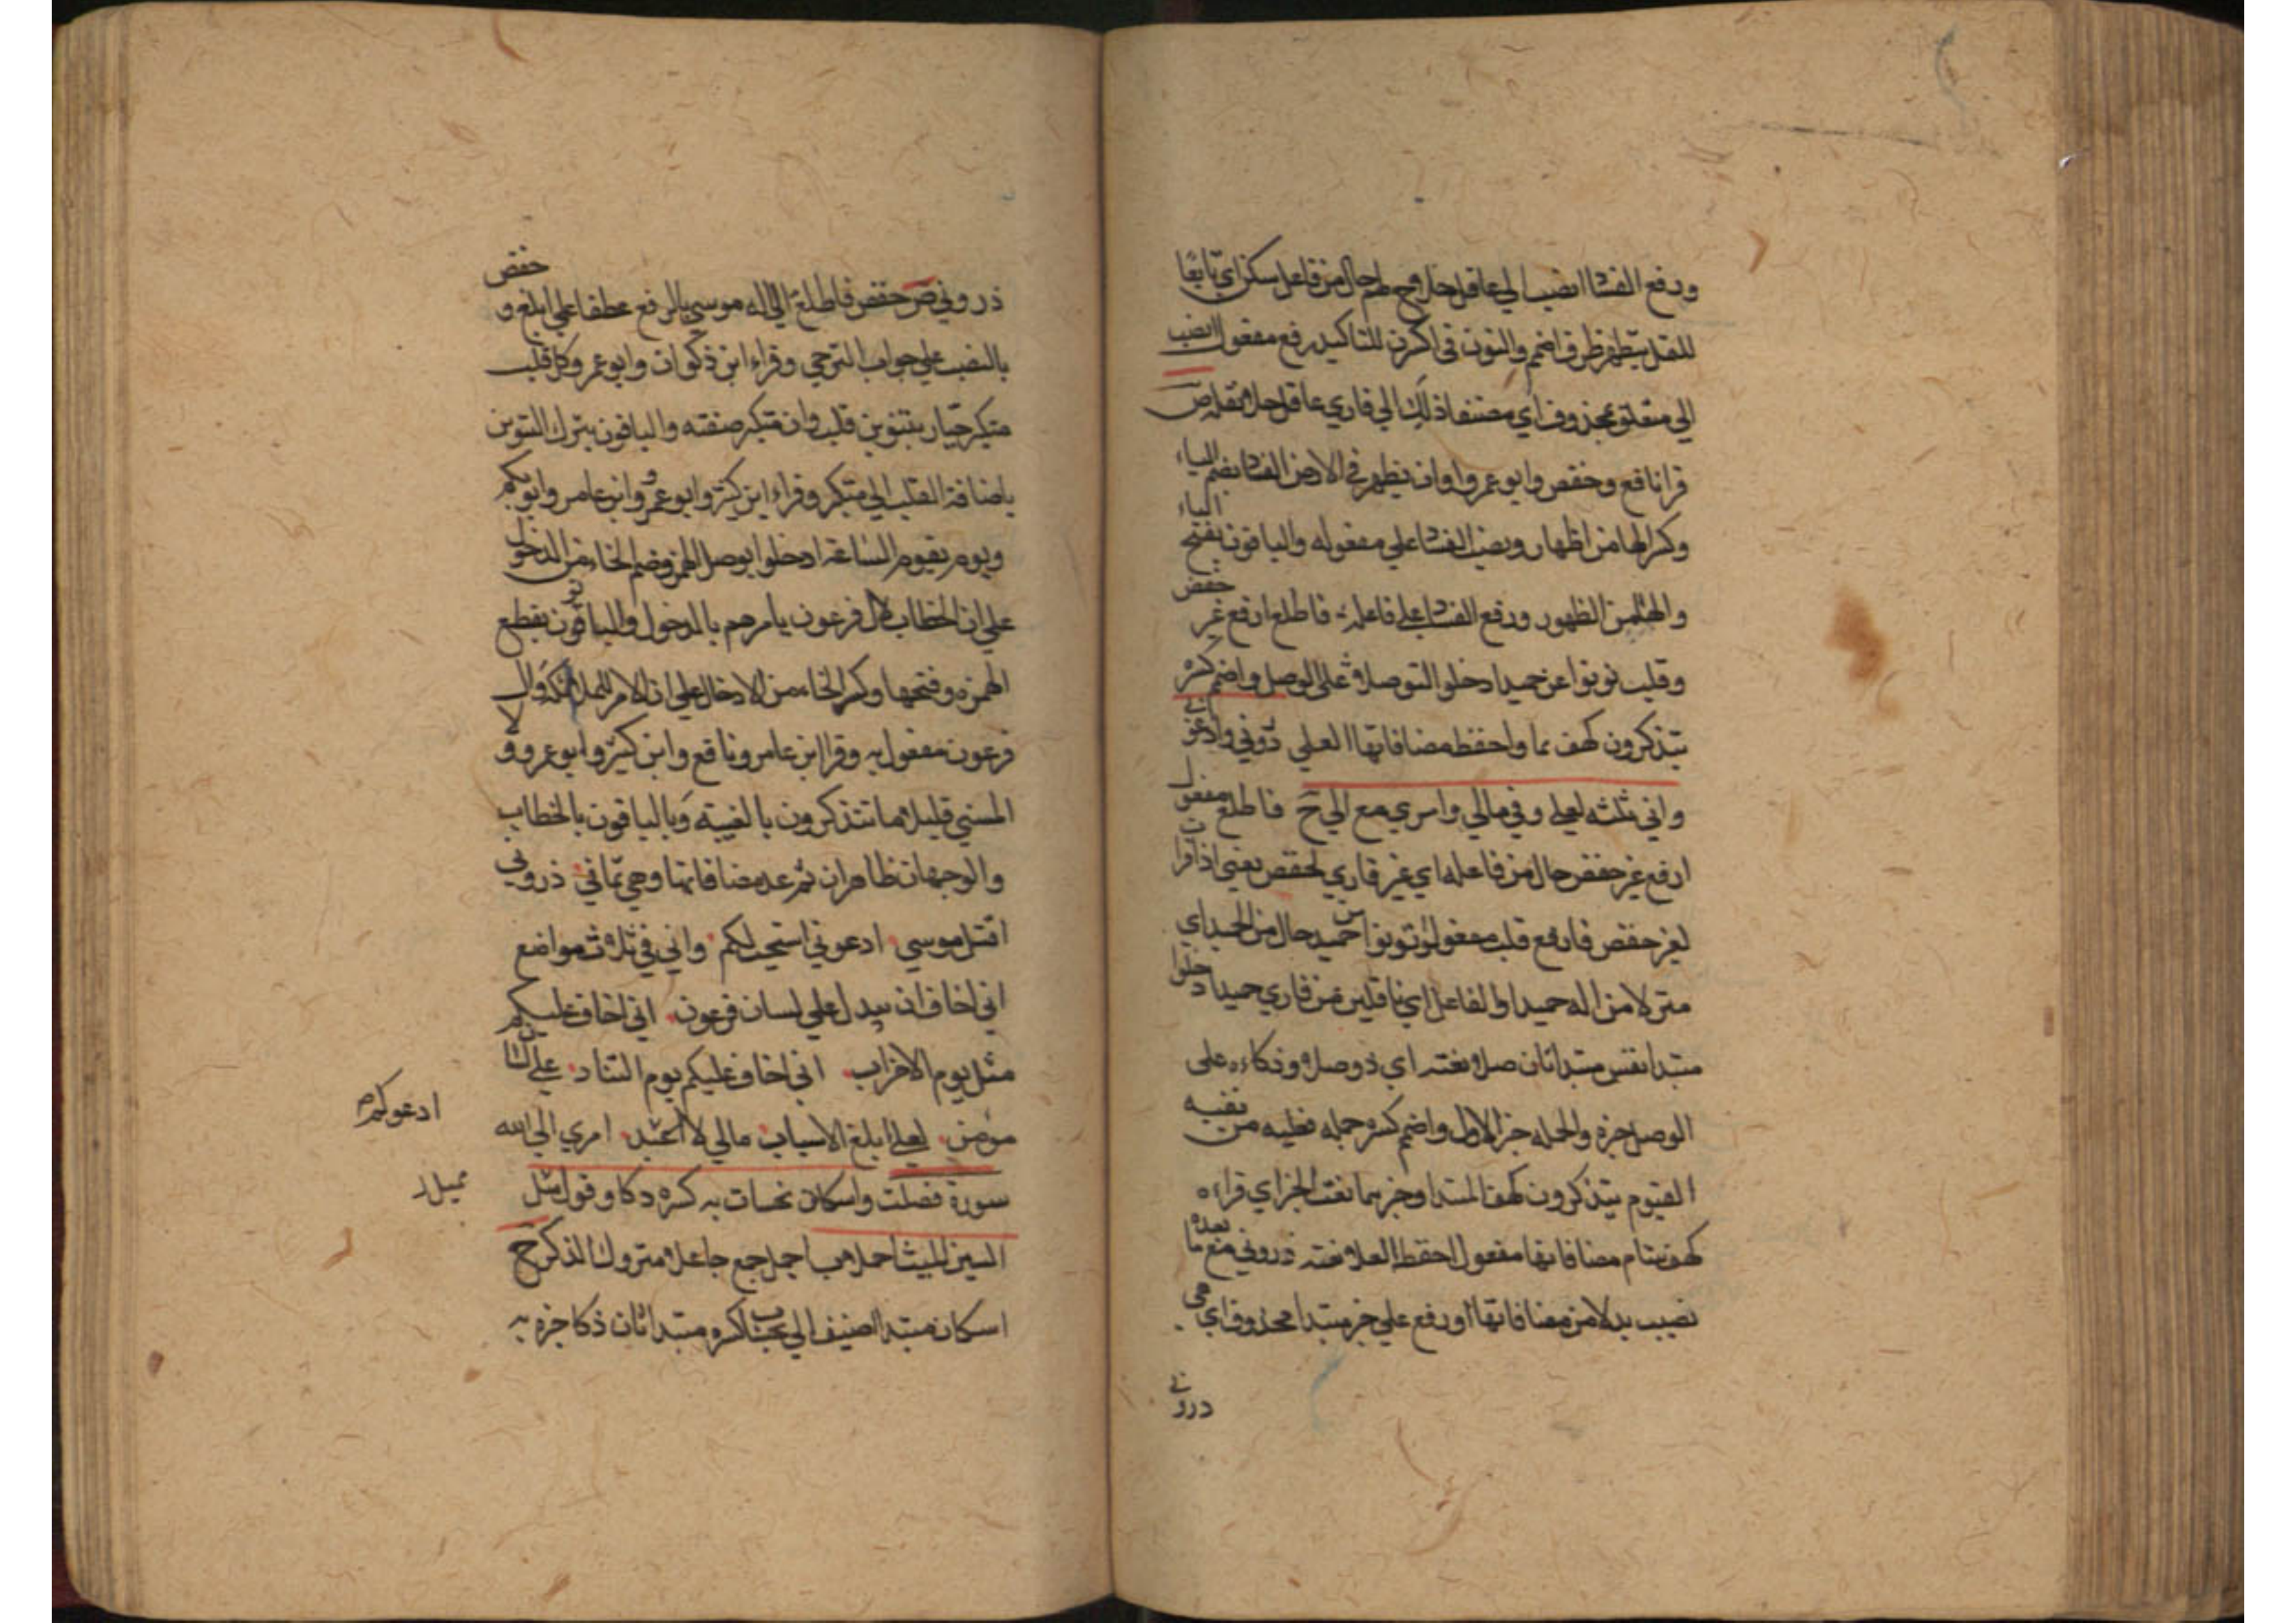 ورفع الفساد انصب الي عاقل حلا وجملة حال من فاعل سكن اي تابعا
للنقل يظهر ظرف اضمم والنون في اكسرن للتاكيد رفع مفعول انصب
الي متعلق بمحذوف اي مضيفا ذلك الي قاري عاقل حلا ص
قرا نافع وحفص وابو عمرو وان يظهر في الارض الفساد بضم الياء
وكسر الها من اظهار ونصب الفساد علي مفعوله والباقون بفتح الياء
والها من الظهور ورفع الفساد علي فاعله فاطلع ارفع غير حفص
وقلب نونوا عن حميد ادخلوا التوصلا علي الوصل واضمم كسره
يتذكرون كهف سما واحفظ مضافاتها العلي ذروني وادعوني
واني ثلثة لعلي وفي مالي وامري مع الي ح فاطلع مفعول
ارفع غير حفص حال من فاعله اي غير قاري لحفص يعني اذا قرات
لغير حفص فارفع قلب مفعول نونوا من حميد حال من الحميد اي
منزلا من اله حميد او الفاعل اي ناقلين من قاري حميد ادخلوا
مبتدا نفس مبتدا ثان صلا نعته اي ذو صلا وذكاء علي
الوصل خبره والجملة خبر الاول واضمم كسره جملة فعلية من نفيه
القيوم يتذكرون كهف المبتدا وخبر سما نعت الخبر اي قراءه
كهف سام مضافاتها مفعول احفظ العلا نعته ذروني مع ما بعده
نصب بدلا من مضافاتها او رفع علي خبر مبتدا محذوف اي هي
ذروني
ذروني ص حفص فاطلع الي اله موسي بالرفع عطفا علي ابلغ و حفص
بالنصب علي جواب الترجي وقراء ابن ذكوان وابو عمرو كل قلب
متكبر جبار بتنوين قلب وان متكبر صفته والباقون بترك التنوين
باضافة القلب الي متكبر وقراء ابن كثير وابو عمرو وابن عامر وابو بكر
ويوم تقوم الساعة ادخلوا بوصل الهمز وضم الخاء من الدخول
علي ان الخطاب لال فرعون يامرهم بالدخول والباقون بقطع
الهمزة وفتحها وكسر الخاء من الادخال علي ان الامر للملائكة وال
فرعون مفعول به وقرا ابن عامر ونافع وابن كثير وابو عمرو و لا
المسئي قليلا ما تتذكرون بالغيبة والباقون بالخطاب
والوجهان ظاهران ثم عد مضافاتها وهي ثماني ذروني
اقتل موسي ادعوني استجب لكم واني في ثلاث مواضع
اني اخاف ان يبدل علي لسان فرعون اني اخاف عليكم
مثل يوم الاحزاب اني اخاف عليكم يوم التناد علي لسان
مومن لعلي ابلغ الاسباب مالي لا اعبد امري الي الله
ادعوكم
سورة فصلت واسكان نحسات به كسره ذكا وقول مميل
مميل
السين لليث اخملا ب اخمل جمع جاعلا متروك الذكر ح
اسكان مبتدا اضيف الي نحسات كسره مبتدا ثان ذكا خبره به